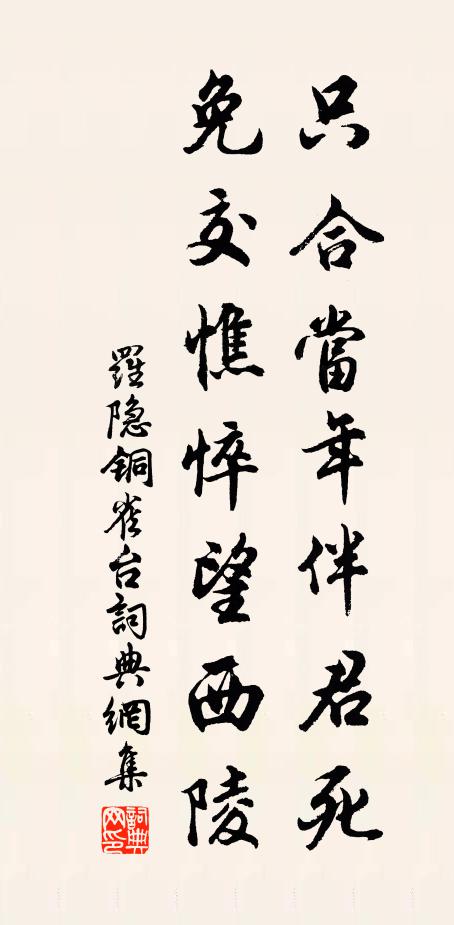 只合當年伴君死
免交憔悴望西陵
羅隐铜雀台詞典網集
詞典網印